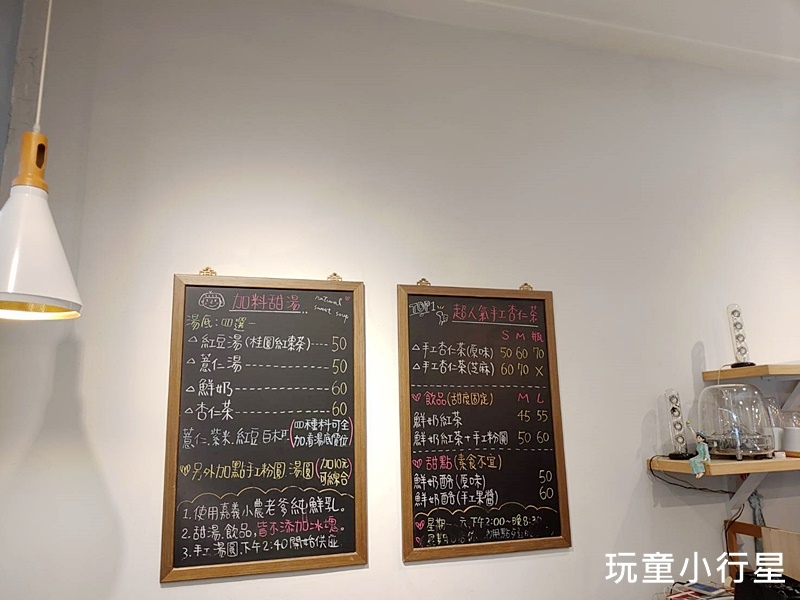 加料甜湯..
natural sweet soup
湯底:四選一
△紅豆湯(桂圓紅棗茶)----50
△薏仁湯 50
△鮮奶 60
△杏仁茶 60
薏仁.紫米.紅豆.白木耳(四種料可全加.看湯底價位)
另外加點手工粉圓.湯圓(加10元可綜合)
1.使用嘉義小農老爹純鮮乳。
2.甜湯.飲品,皆不添加冰塊。
3.手工湯圓.下午2:40開始供應
TOP1
超人氣手工杏仁茶
S M 瓶
△手工杏仁茶(原味) 50 60 70
△手工杏仁茶(芝麻) 60 70 X
飲品(甜度固定) M L
鮮奶紅茶 45 55
鮮奶紅茶+手工粉圓 50 60
甜點(素食不宜)
鮮奶酪(原味) 50
鮮奶酪(手工果醬) 60
星期 下午2:00~晚8:3
玩童小行星